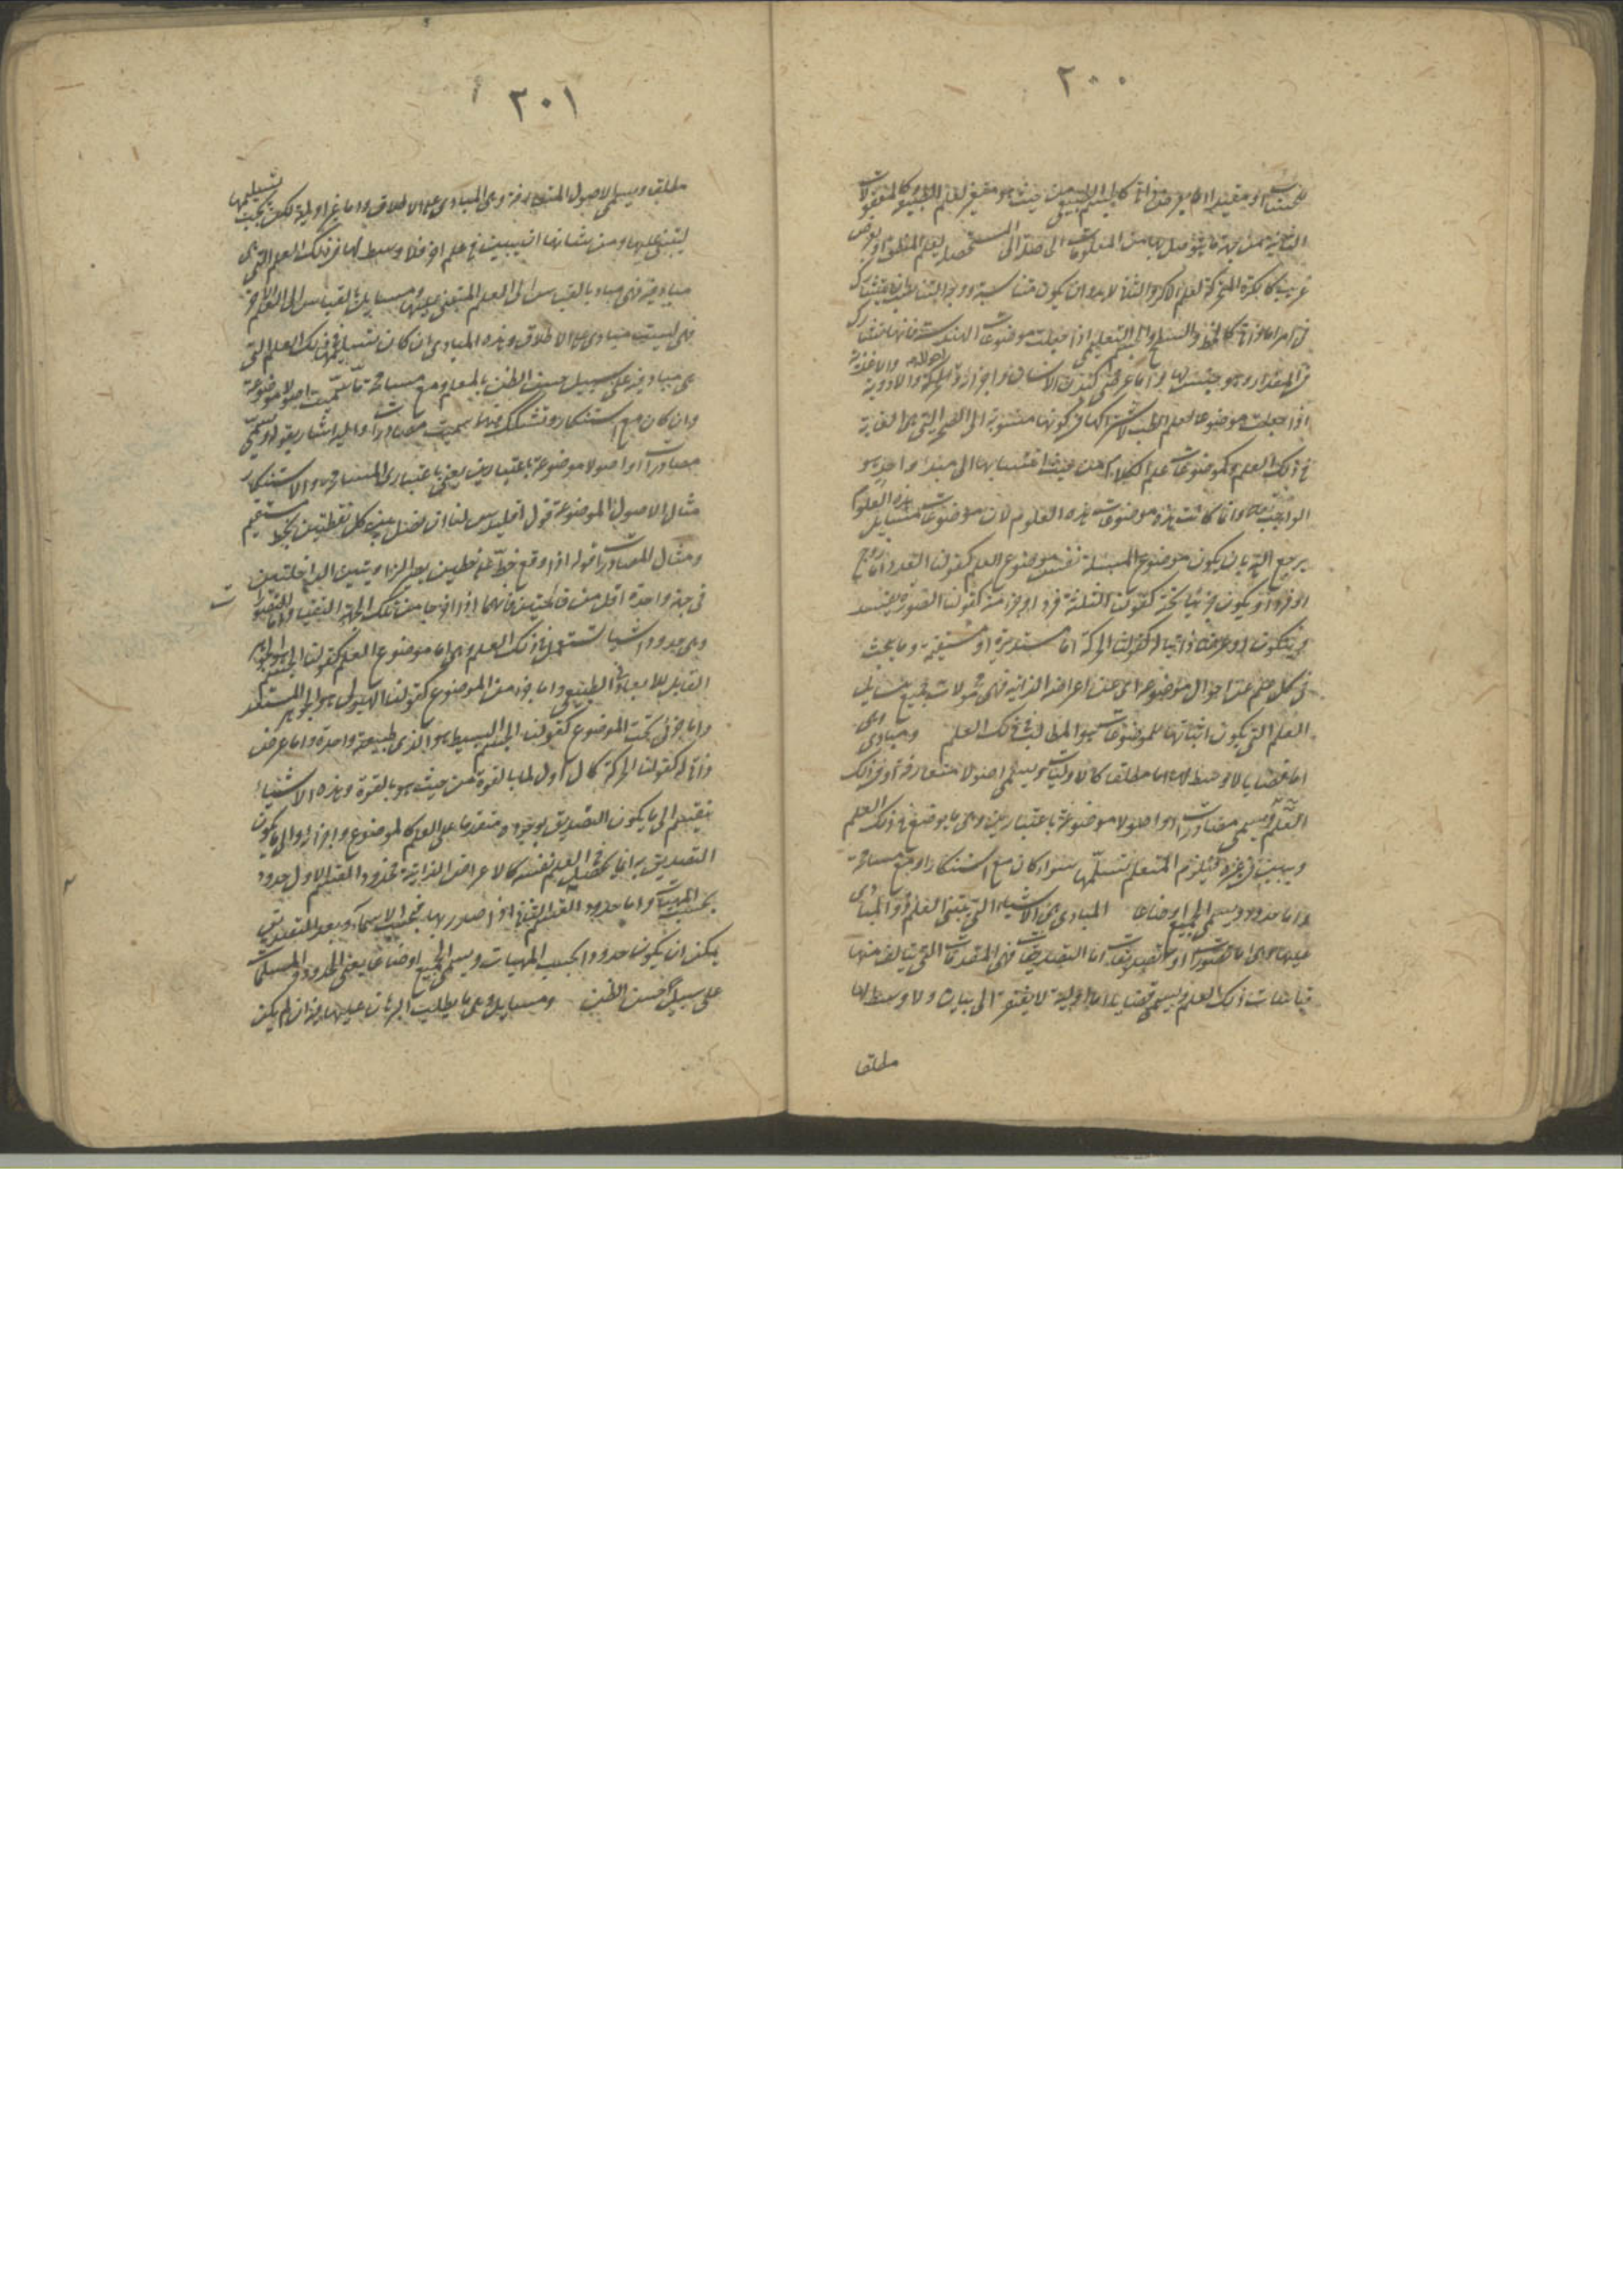 ٢٠٠
للحساب او مقيدا اما بعرض ذاتي كالجسم الطبيعي من حيث هو متغير لعلم الطبيعي وكالمعقولات
الثانية من جهة ما يتوصل بها من المعلومات الى
غريب كالكرة المتحركة لعلم الاكر والثاني لا بد وان يكون متناسبة ووجه التناسب ان يتشارك
في امر اما ذاتي كالخط والسطح والجسم التعليمي اذا جعلت موضوعات الهندسة فانها تتشارك
في المقدار وهو جنس لها واما عرضي كبدن الانسان واجزائه واحواله والادوية والاغذية
اذا جعلت موضوعا لعلم الطب لاشتراكها في كونها منسوبة الى الصحة التي هي الغاية
في ذلك العلم وكموضوعات علم الكلام من حيث انتسابها الى مبدء واحد هو
الواجب وانما كانت هذه موضوعات هذه العلوم لان موضوعات مسايل هذه العلوم
يرجع اليه بان يكون موضوع المسئلة نفس موضوع العلم كقولنا العدد اما زوج
او فرد او يكون جزئيا تحته كقولنا الثلثة فرد او جزء منه كقولنا الصورة تفسد
ويتكون او عرضا ذاتيا له كقولنا الحركة اما مستديرة او مستقيمة وما يبحث
في كل علم عن احوال موضوعه اي عن اعراضه الذاتية فهي محمولات جميع مسايل
العلم التي يكون اثباتها للموضوعات هو المطالب في ذلك العلم ومبادي وهي
اما قضايا لا وسط لها اما مطلقا كالاوليات ويسمى اصولا متعارفة او في ذلك
العلم ويسمى مصادرات او اصولا موضوعة باعتبارين وهي ما يوضع في ذلك العلم
ويبين في غيره فيلزم المتعلم تسلمها سواء كان مع استنكار او مع مسامحة
واما حدود ويسمى الجميع اوضاعا المبادي هي الاشياء التي يبتني العلم
عليها وهي اما تصورات او تصديقات اما التصديقات فهي المقدمات التي يتالف منها
قياسات ذلك العلم ويسمى قضايا اما اولية لا يفتقر الى بيان ولا وسط لها
مطلقا
٢٠١
مطلقا ويسمى الاصول المتعارفة وهي المبادي على الاطلاق واما غير اولية لكن يجب تسليمها
ليبتني عليها ومن شانها ان يبين في علم اخر فلا وسط لها في ذلك العلم التي هي
مبادي فيه فهي مبادي بالقياس الى العلم المبتني عليها ومسايل بالقياس الى العلم الاخر
فهي ليست مبادي على الاطلاق وهذه المبادي ان كان تسليمها في ذلك العلم التي
هي مبادي فيه على سبيل حسن الظن بالمعلم ومع مسامحة ما سميت اصولا موضوعة
وان كان مع استنكار وتشكك فيها سميت مصادرات واليه اشار بقوله ويسمى
مصادرات او اصولا موضوعة باعتبارين يعني باعتباري المسامحة والاستنكار
مثال الاصول الموضوعة قول اقليدس لنا ان نصل بين كل نقطتين بخط مستقيم
ومثال المصادرات قوله اذا وقع خط على خطين يصير الزاويتين الداخلتين
في جهة واحدة اقل من قائمتين فانهما اذا اخرجا من تلك الجهة التقيا واما التصورات
وهي حدود اشياء تستعمل في ذلك العلم وهي اما موضوع العلم كقولنا الجسم هو الجوهر
القابل للابعاد في الطبيعي واما جزء من الموضوع كقولنا الهيولى هو الجوهر المستعد
واما جزئي تحت الموضوع كقولنا الجسم البسيط هو الذي طبيعته واحدة واما عرض
ذاتي له كقولنا الحركة كمال اول لما بالقوة من حيث هو بالقوة وهذه الاشياء
ينقسم الى ما يكون التصديق بوجوده متقدما على العلم كالموضوع واجزائه والى ما يكون
التصديق به انما يحصل في العلم نفسه كالاعراض الذاتية فحدود القسم الاول حدود
بحسب المهيات واما حدود القسم الثاني اذا صدر بها فبحسب الاسماء وبعد التصديق
يمكن ان يكون حدودا بحسب المهيات ويسمى الجميع اوضاعا يعني الحدود والمسلمات
على سبيل حسن الظن ومسايل وهي ما يطلب البرهان عليها فيه ان لم يكن